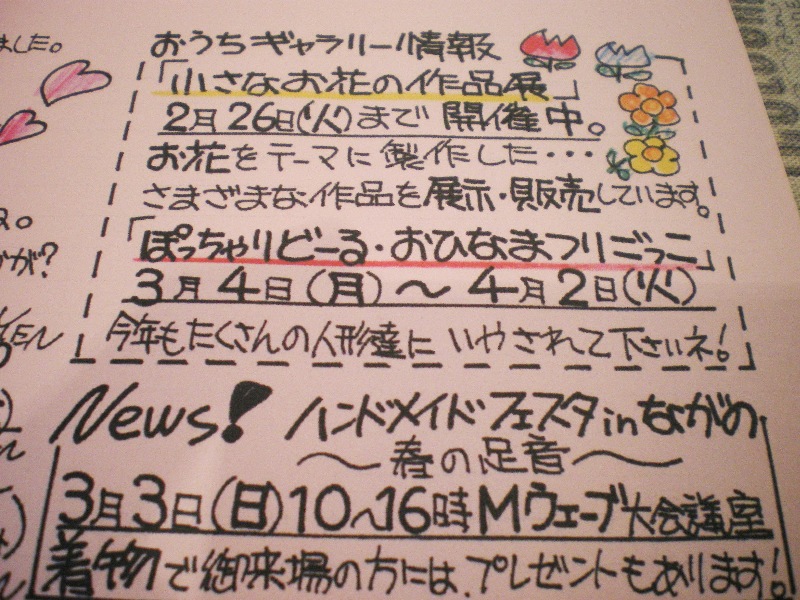 ました。
おうちギャラリー情報
「小さなお花の作品展」
2月26日(火)まで開催中。
お花をテーマに製作した・・・
さまざまな作品を展示・販売しています。
「ぽっちゃりどーる・おひなまつりごっこ」
3月4日(月)～4月2日(火)
今年もたくさんの人形達にいやされて下さいネ!
News! ハンドメイドフェスタinながの
～春の足音～
3月3日(日)10～16時Mウェーブ大会議室
着物で御来場の方には、プレゼントもあります!